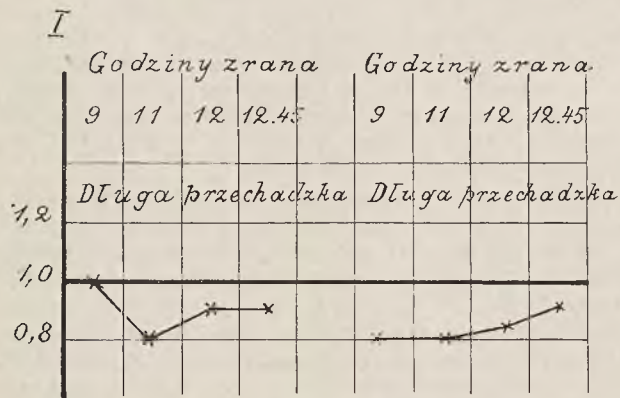 I
Godziny zrana Godziny zrana
9 11 12 12.45 9 11 12 12.45
Długa przechadzka Długa przechadzka
1,2
1,0
0,8